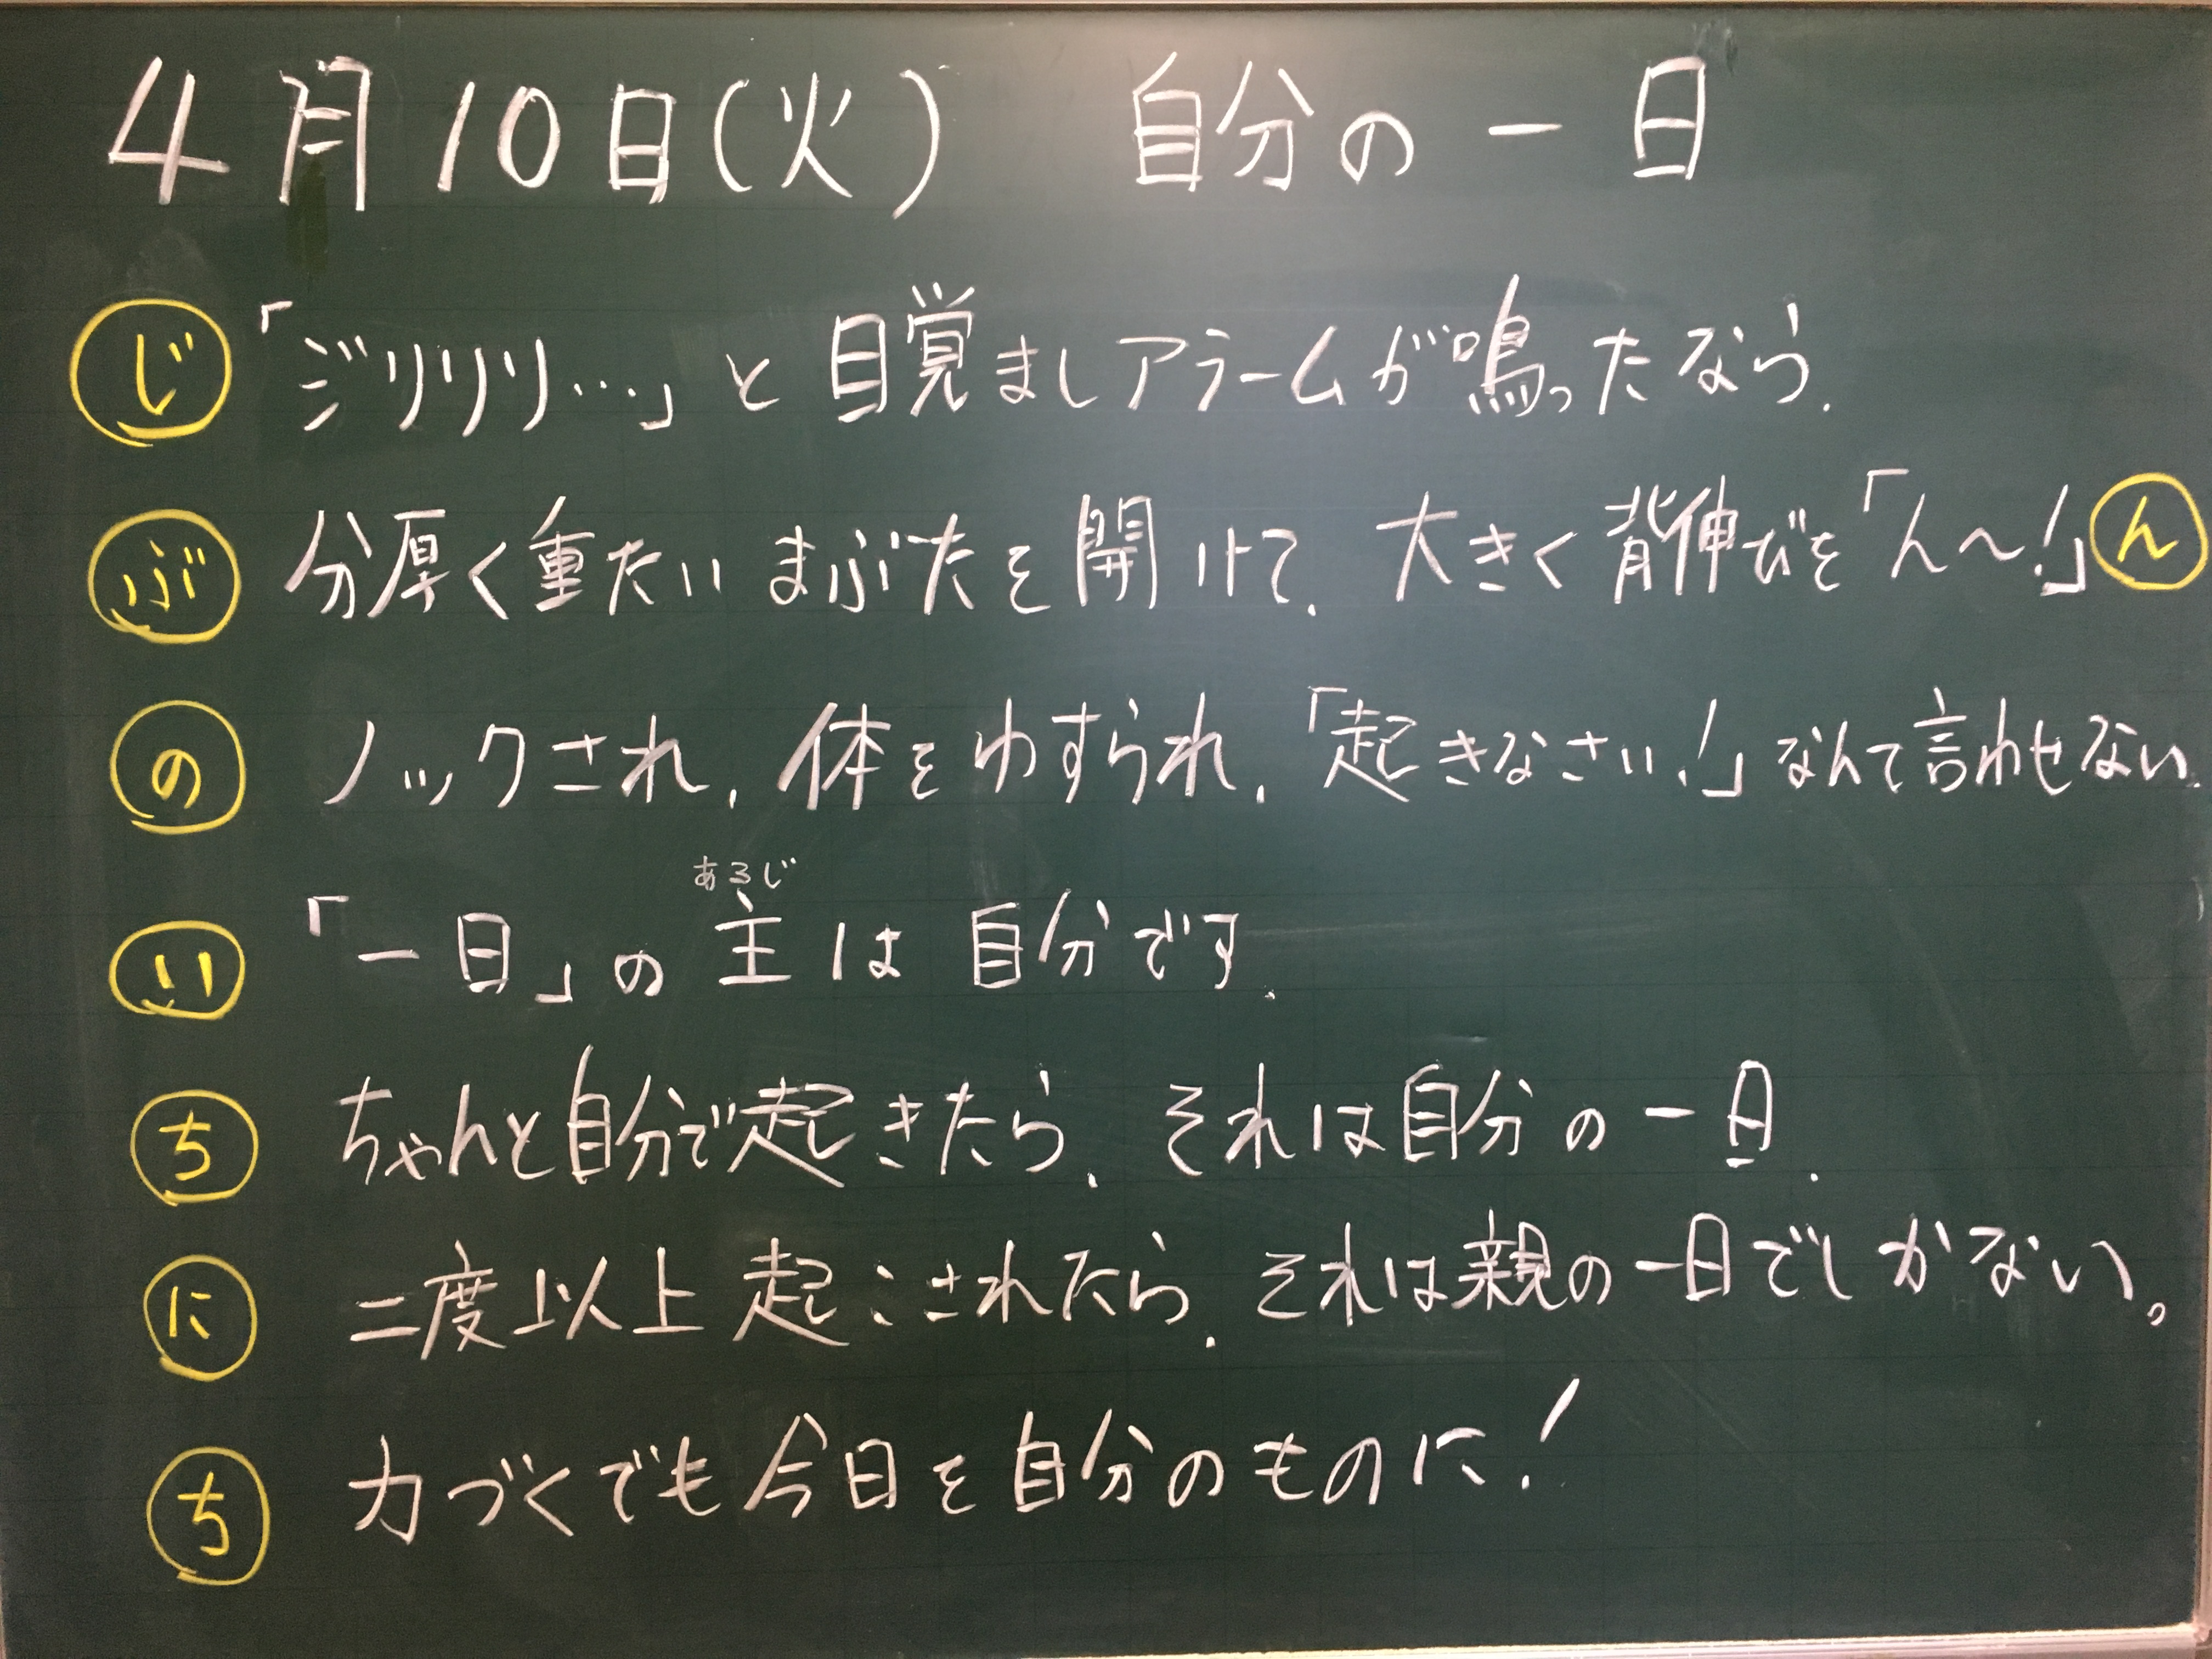 4月10日(火) 自分の一日
じ 「ジリリリ…」と目覚ましアラームが鳴ったなら、
ぶ 分厚く重たいまぶたを開けて、大きく背伸びを「ん〜!」 ん
の ノックされ、体をゆすられ、「起きなさい!」なんて言わせない。
あるじ
い 「一日」の主は自分です。
ち ちゃんと自分で起きたら、それは自分の一日。
に 二度以上起こされたら、それは親の一日でしかない。
ち 力づくでも今日を自分のものに!